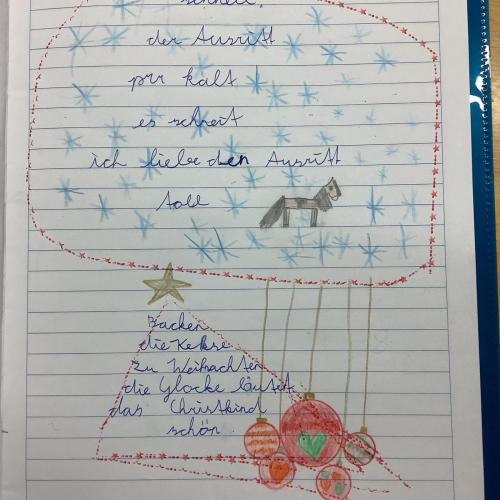 schneit
der Ausritt
prr kalt!
es schneit
ich liebe den Ausritt
toll
Backen
die Kekse
zu Weihnachten
die Glocke läutet
das Christkind
schön